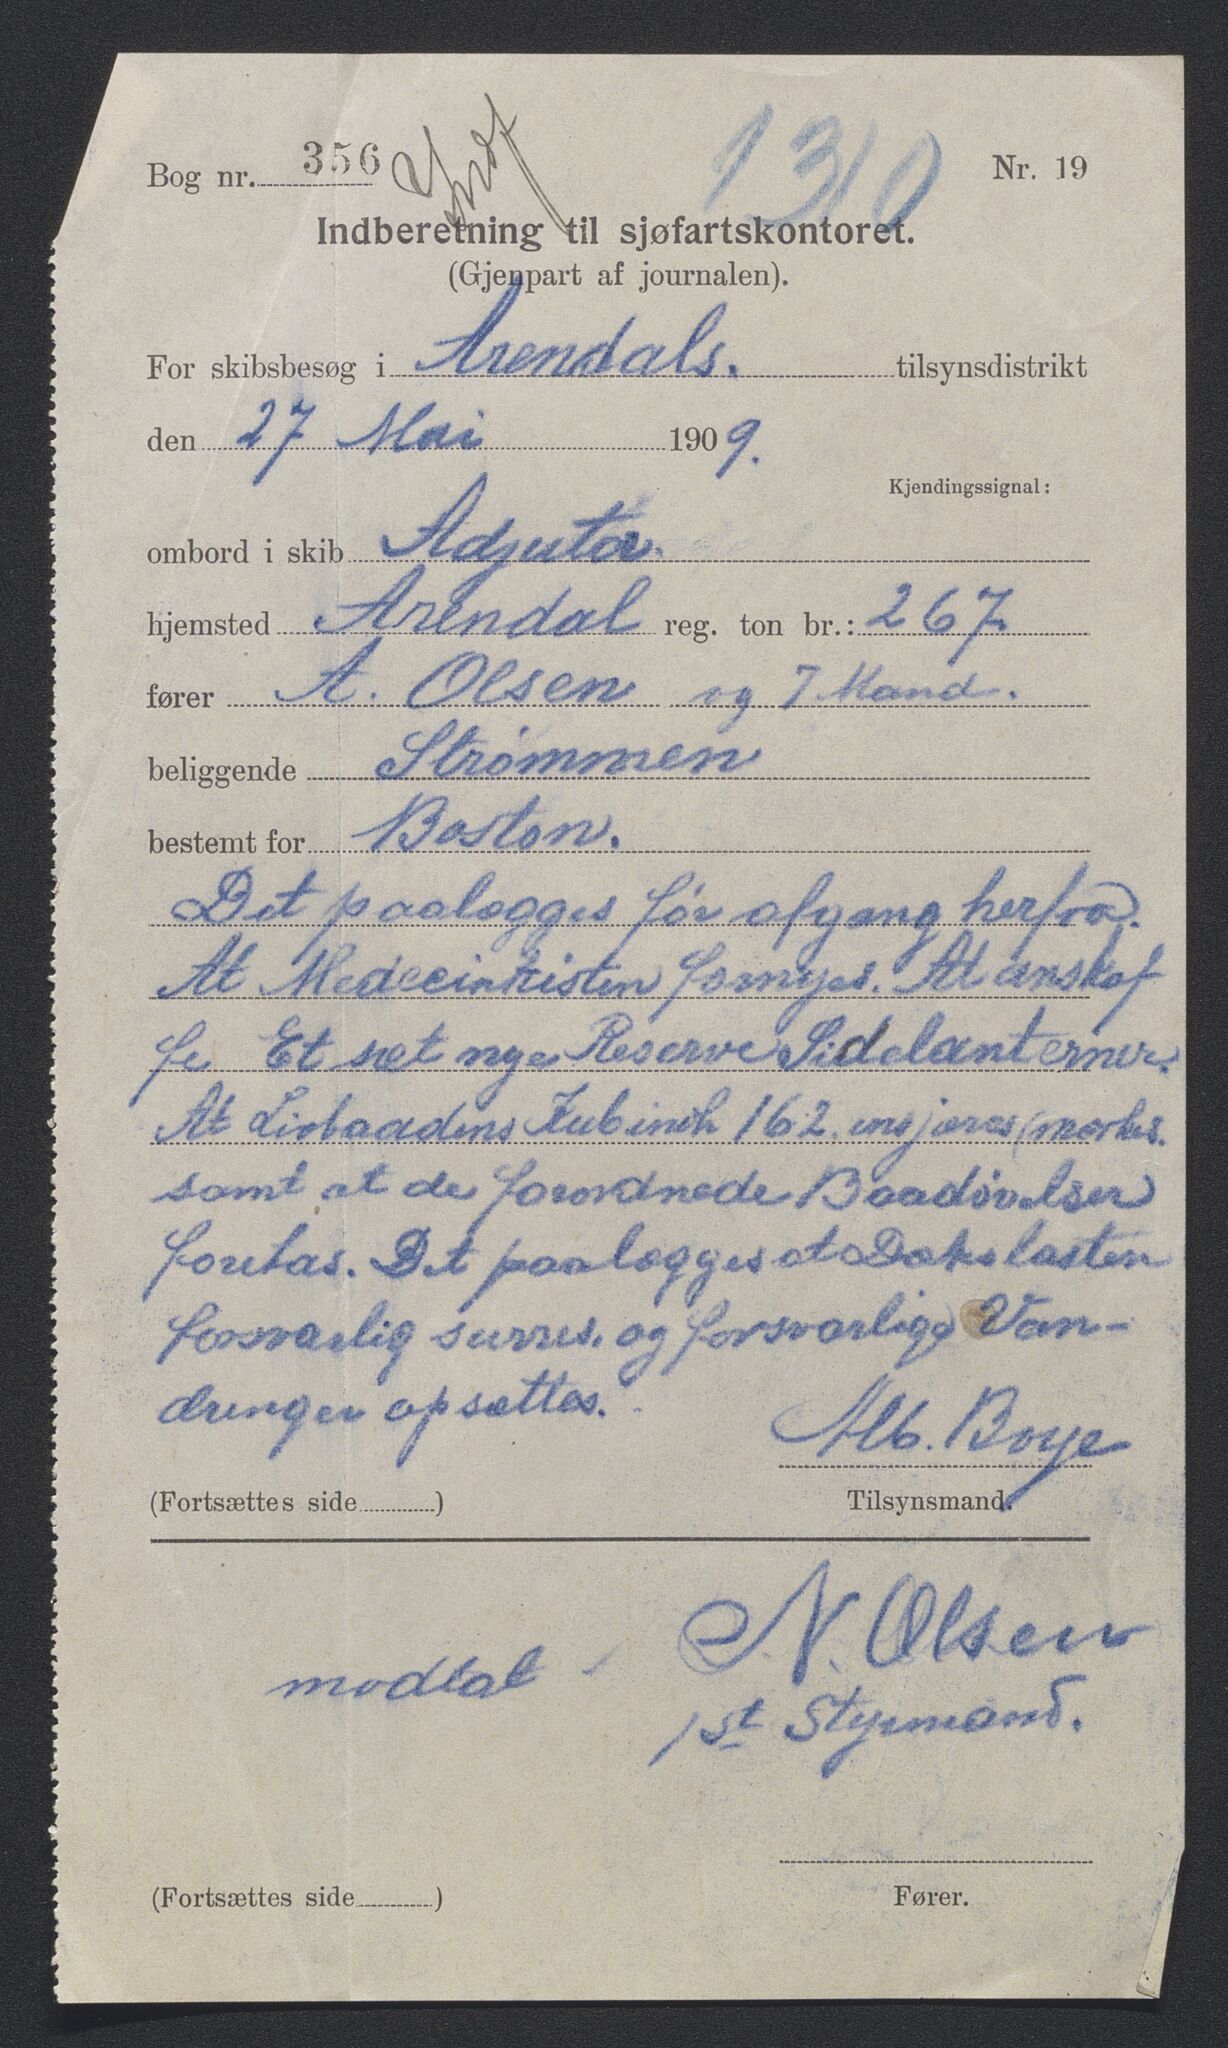 1310
Bog nr. 356 Nr. 19
Indberetning til sjøfartskontoret.
(Gjenpart af journalen).
For skibsbesøg i Arendals. tilsynsdistrikt
den 27 Mai 1909.
Kjendingssignal:
ombord i skib Adjutor
hjemsted Arendal reg. ton br.: 267
fører A. Olsen og 7 Mand.
beliggende Strømmen
bestemt for Boston.
Det paalægges før afgang herfra.
At Medecinkisten fornyes. At anskaf
fe Et sæt nye Reserve Sidelanterner.
At Livbaadens Kubinch 162. (mærkes.
samt at de forordnede Baadøvelser
foretas. Det paalægges at Dækslasten
forsvarlig surres. og forsvarlige Van-
dringer opsættes.
Alb. Boye
(Fortsættes side ) Tilsynsmand.
modtat N. Olsen
1st Styrmand.
(Fortsættes side ) Fører.